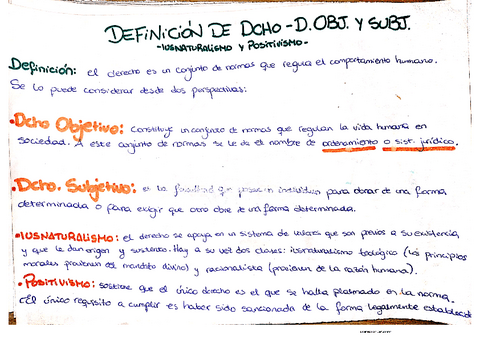 DEFINICIÓN DE DCHO - D. OBJ. Y SUBJ.
- IUSNATURALISMO Y POSITIVISMO -
Definición: el derecho es un conjunto de normas que regula el comportamiento humano.
Se lo puede considerar desde dos perspectivas:
• Dcho Objetivo: Constituye un conjunto de normas que regulan la vida humana en
sociedad. A este conjunto de normas se le da el nombre de ordenamiento o sist. jurídico.
• Dcho. Subjetivo: es la facultad que posee un individuo para obrar de una forma
determinada o para exigir que otro obre de una forma determinada.
• IUSNATURALISMO: el derecho se apoya en un sistema de valores que son previos a su existencia
y que le dan origen y sustento. Hay a su vez dos clases: iusnaturalismo teológico (los principios
morales provienen del mandato divino) y racionalista (provienen de la razón humana).
• POSITIVISMO: sostiene que el único derecho es el que se halla plasmado en la norma.
El único requisito a cumplir es haber sido sancionada de la forma legalmente establecida